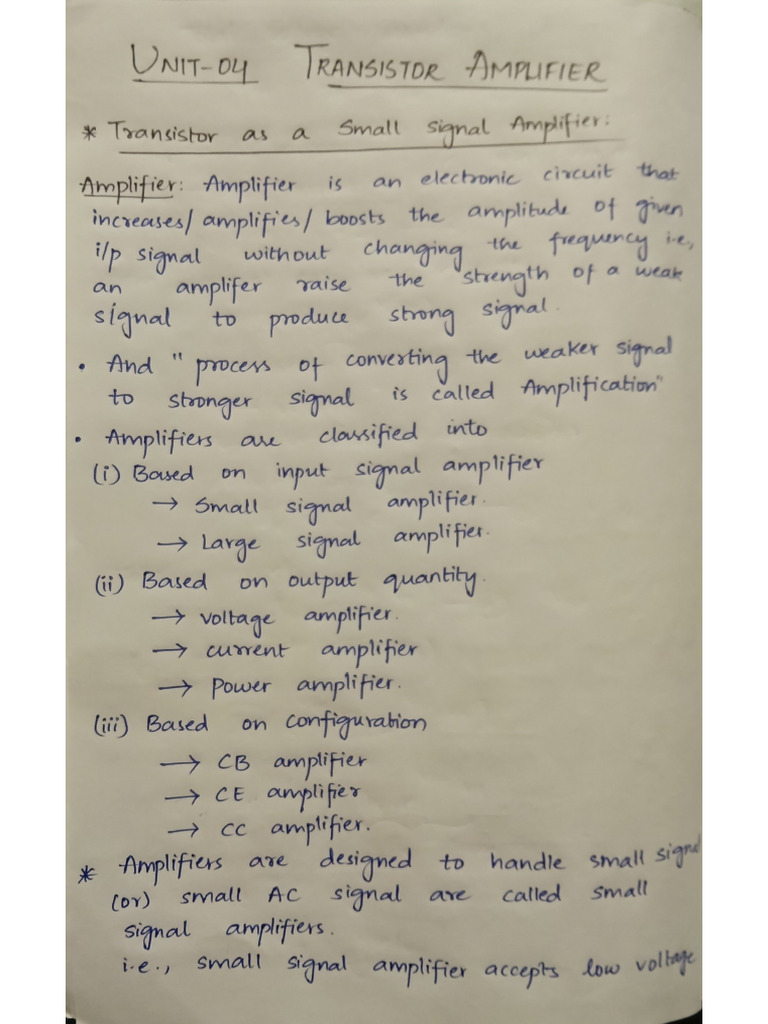 UNIT-04 TRANSISTOR AMPLIFIER
* Transistor as a Small signal Amplifier:
Amplifier: Amplifier is an electronic circuit that
increases/amplifies/boosts the amplitude of given
i/p signal without changing the frequency i.e,
an amplifer raise the strength of a weak
signal to produce strong signal.
• And "process of converting the weaker signal
to stronger signal is called Amplification"
• Amplifiers are classified into
(i) Based on input signal amplifier
→ Small signal amplifier.
→ Large signal amplifier.
(ii) Based on output quantity.
→ voltage amplifier.
→ current amplifier
→ Power amplifier.
(iii) Based on configuration
→ CB amplifier
→ CE amplifier
→ CC amplifier.
* Amplifiers are designed to handle small signal
(or) small AC signal are called small
signal amplifiers.
i.e., small signal amplifier accepts low voltage